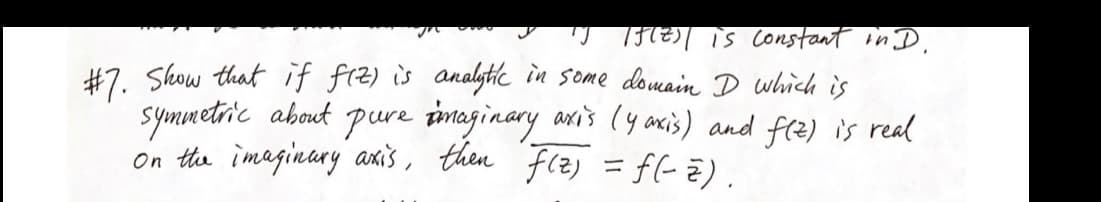 |f(z)| is constant in D.
#7. Show that if f(z) is analytic in some domain D which is
symmetric about pure imaginary axis (y axis) and f(z) is real
on the imaginary axis, then \overline{f(z)} = f(-z̄).